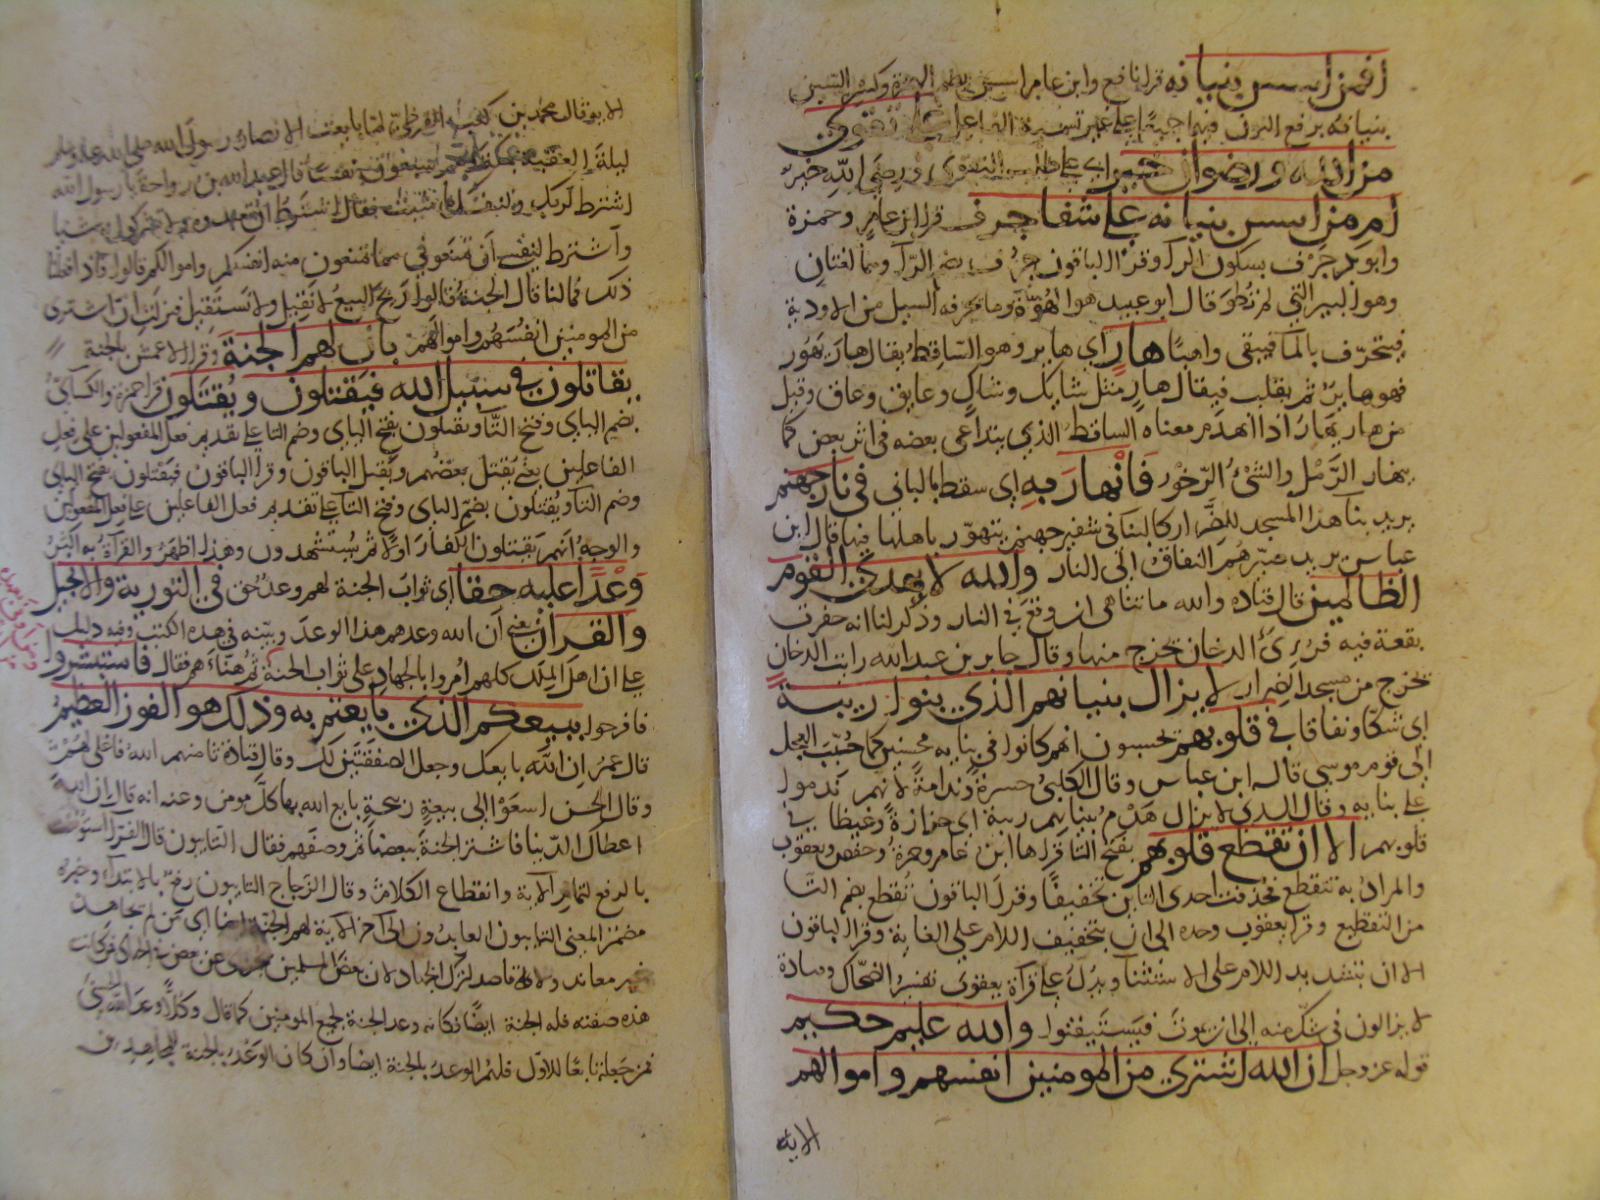 افمن اسس بنيانه قرا نافع وابن عامر اسس بضم الهمزة وكسر السين
بنيانه برفع النون فيهما جميعا على غير تسمية الفاعل على تقوى
من الله ورضوان خير اي على طلب التقوى ورضى الله خير
ام من اسس بنيانه على شفا جرف قرا ابن عامر وحمزة
وابو بكر جرف بسكون الرا وقرا الباقون جرف بضم الرا وهما لغتان
وهو البير التي لم تطو قال ابو عبيد هو الهوة وما يجرفه السيل من الاودية
فيتجرف بالما فيبقى واهيا هار اي هاير وهو الساقط يقال هار يهور
فهو هاير ثم يقلب فيقال هار مثل شايك وشاك وعايق وعاق وقيل
من هار يهار اذا انهدم معناه الساقط الذي يتداعى بعضه في اثر بعض كما
ينهار الرمل والشي الرخو فانهار به اي سقط بالباني في نار جهنم
يريد بنا هذا المسجد للضرار كالبنا في شفير جهنم يتهور باهلها فيها قال ابن
عباس يريد صيرهم النفاق الى النار والله لا يهدي القوم
الظالمين قال قتادة والله ما تناهى ان وقع في النار وذكر لنا انه حفرت
بقعة فيه فرؤي الدخان تخرج منها وقال جابر بن عبد الله رايت الدخان
تخرج من مسجد الضرار لا يزال بنيانهم الذي بنوا ريبة
اي شكا ونفاقا في قلوبهم يحسبون انهم كانوا في بنايه محسنين كما حبب العجل
الى قوم موسى قاله ابن عباس وقال الكلبي حسرة وندامة لانهم ندموا
على بنايه وقال السدي لا يزال هدم بنيانهم ريبة اي حزازة وغيظا في
قلوبهم الا ان تقطع قلوبهم بفتح التا قراها ابن عامر وحمزة وحفص ويعقوب
والمراد به تتقطع فحذفت احدى التاين تخفيفا وقرا الباقون تقطع بضم التا
من التقطيع وقرا يعقوب وحده الى ان بتخفيف اللام على الغاية وقرا الباقون
الا ان بتشديد اللام على الاستثنا ويدل على قراة يعقوب تفسير الضحاك وقتادة
لا يزالون في شك منه الى ان يموتوا فيستيقنوا والله عليم حكيم
قوله عز وجل ان الله اشترى من المومنين انفسهم واموالهم
الاية
الاية قال محمد بن كعب القرظي لما بايعت الانصار رسول الله صلى الله عليه وسلم
ليلة العقبة بمكة وهم سبعون نفسا قال عبد الله بن رواحة يا رسول الله
اشترط لربك ولنفسك ما شيت فقال اشترط لربي ان تعبدوه ولا تشركوا به شيا
واشترط لنفسي ان تمنعوني مما تمنعون منه انفسكم واموالكم قالوا فاذا فعلنا
ذلك فما لنا قال الجنة قالوا ربح البيع لا نقيل ولا نستقيل فنزلت ان الله اشترى
من المومنين انفسهم واموالهم بان لهم الجنة وقرا الاعمش بالجنة
يقاتلون في سبيل الله فيقتلون ويقتلون قرا حمزة والكساي
بضم الياي وفتح التا ويقتلون بفتح الياي وضم التا على تقديم فعل المفعولين على فعل
الفاعلين يعني يقتل بعضهم ويقتل الباقون وقرا الباقون فيقتلون بفتح الياي
وضم التا ويقتلون بضم الياي وفتح التا على تقديم فعل الفاعلين على فعل المفعولين
والوجه انهم يقتلون الكفار اولا ثم يستشهدون وهذا اظهر والقراة به اكثر
وعدا عليه حقا اي ثواب الجنة لهم وعد حق في التورية والانجيل
والقران يعني ان الله وعدهم هذا الوعد وبينه في هذه الكتب وفيه دليل
على ان اهل الملل كلهم امروا بالجهاد على ثواب الجنة ثم هناهم فقال فاستبشروا
فافرحوا ببيعكم الذي بايعتم به وذلك هو الفوز العظيم
قال عمر ان الله بايعك وجعل الصفقتين لك وقال قتادة ثامنهم الله فاغلى لهم
وقال الحسن اسعوا الى بيعة ربيحة بايع الله بها كل مومن وعنه انه قال ان الله
اعطاك الدنيا فاشتر الجنة ببعضها ثم وصفهم فقال التايبون قال الفرا استونفت
بالرفع لتمام الاية وانقطاع الكلام وقال الزجاج التايبون رفع بالابتداء وخبره
مضمر المعنى التايبون العابدون الى اخر الاية لهم الجنة ايضا اي من لم يجاهد
غير معاند ولا قاصد لترك الجهاد لان بعض المسلمين يجزى عن بعض في الجهاد فمن كانت
هذه صفته فله الجنة ايضا فكانه وعد الجنة لجميع المومنين كما قال وكلا وعد الله الحسنى
فمن جعله تابعا للاول فلهم الوعد بالجنة ايضا وان كان الوعد بالجنة للمجاهدين